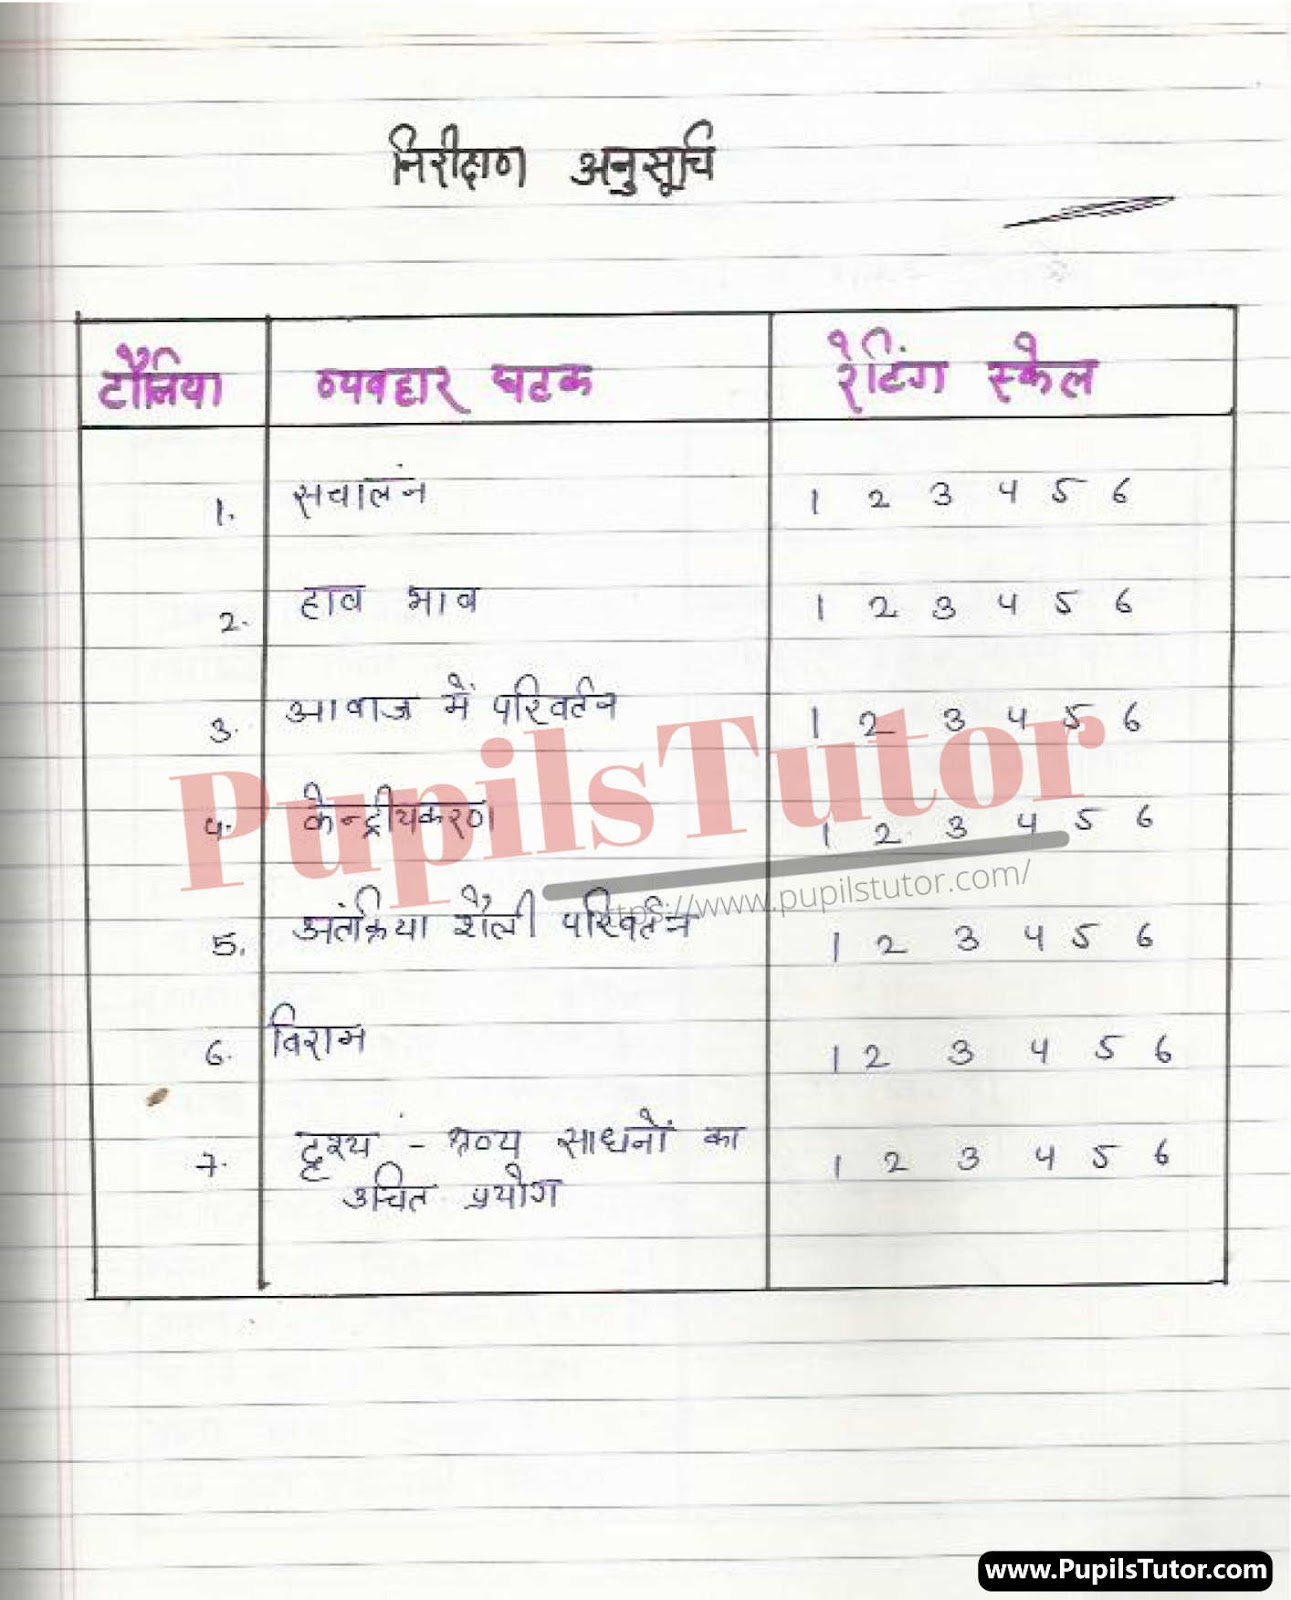 निरीक्षण अनुसूचि
टौलिया व्यवहार घटक रेटिंग स्केल
1. सचालंन 1 2 3 4 5 6
2. हाव भाव 1 2 3 4 5 6
3. आवाज में परिवर्तन 1 2 3 4 5 6
4. केन्द्रीयकरण 1 2 3 4 5 6
5. अतंक्रिया शैली परिवर्तन 1 2 3 4 5 6
6. विराम 1 2 3 4 5 6
7. दृश्यं - श्रव्य साधनों का 1 2 3 4 5 6
उचित प्रयोग
PupilsTutor
https://www.pupilstutor.com/
www.PupilsTutor.com